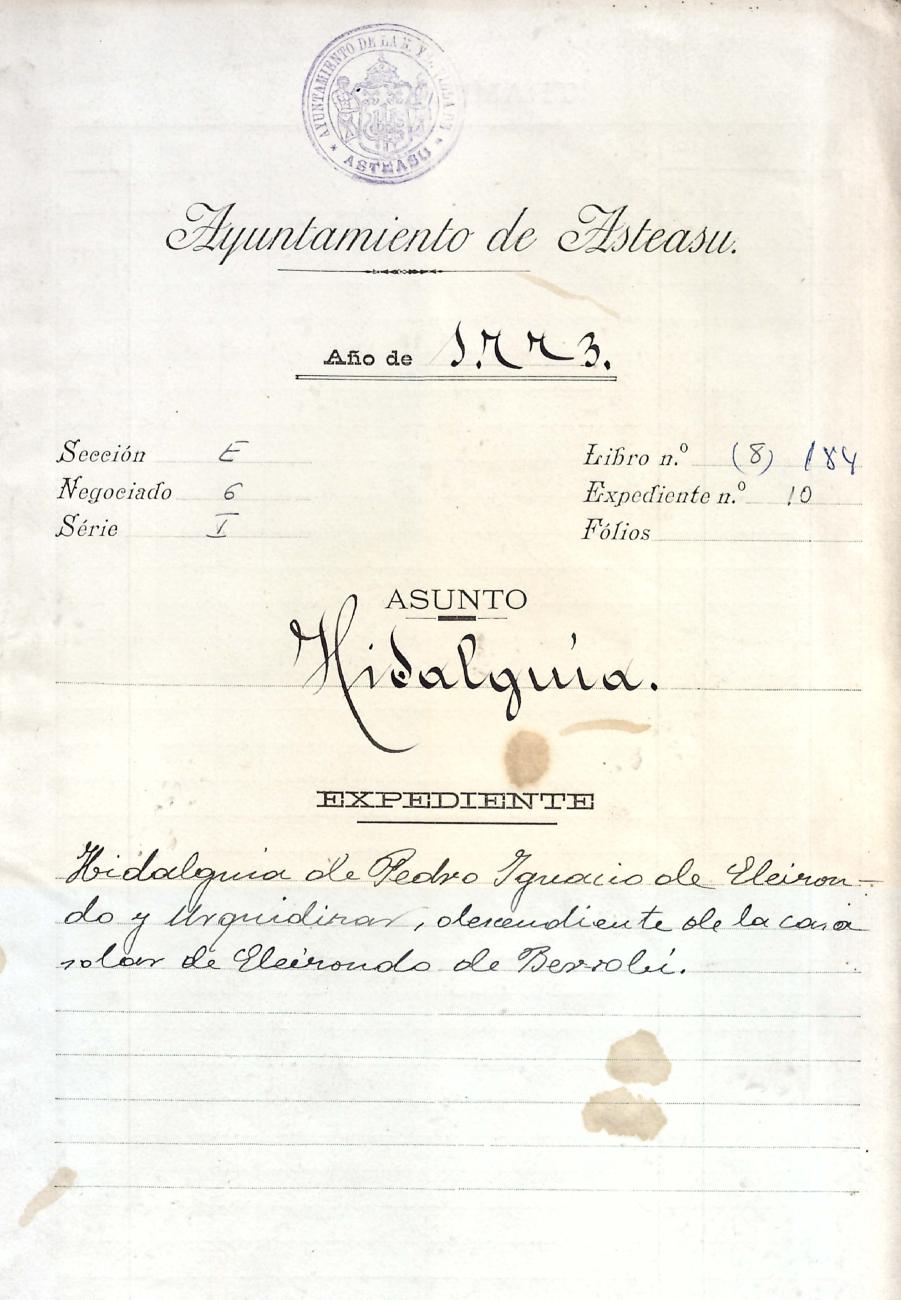 AYUNTAMIENTO DE LA N. Y
ASTEASU
Ayuntamiento de Asteasu.
Año de 1773.
Sección E
Libro n.º (8) 184
Negociado 6
Expediente n.º 10
Série I
Fólios
ASUNTO
Hidalguía.
EXPEDIENTE
Hidalguia de Pedro Ignacio de Eleiron-
do y Urquidizar, descendiente de la casa
solar de Eleirondo de Berrobi.